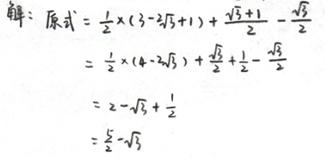 解：原式 = 1/2 × (3 - 2√3 + 1) + (√3 + 1)/2 - √3/2
= 1/2 × (4 - 2√3) + √3/2 + 1/2 - √3/2
= 2 - √3 + 1/2
= 5/2 - √3